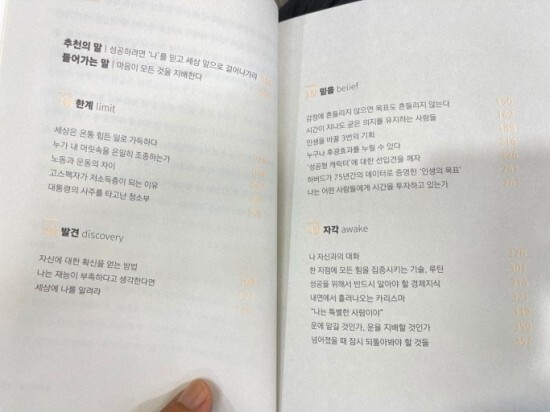 추천의 말 | 성공하려면 '나'를 믿고 세상 앞으로 걸어나가라
들어가는 말 | 마음이 모든 것을 지배한다
한계 limit
세상은 온통 힘든 일로 가득하다
누가 내 머릿속을 은밀히 조종하는가
노동과 운동의 차이
고스펙자가 저소득층이 되는 이유
대통령의 사주를 타고난 청소부
발견 discovery
자신에 대한 확신을 얻는 방법
나는 재능이 부족하다고 생각한다면
세상에 나를 알려라
믿음 belief
감정에 흔들리지 않으면 목표도 흔들리지 않는다
시간이 지나도 굳은 의지를 유지하는 사람들
인생을 바꿀 3번의 기회
누구나 후광효과를 누릴 수 있다
'성공형 캐릭터'에 대한 선입견을 깨자
하버드가 75년간의 데이터로 증명한 '인생의 목표'
나는 어떤 사람들에게 시간을 투자하고 있는가
자각 awake
나 자신과의 대화
한 지점에 모든 힘을 집중시키는 기술, 루틴
성공을 위해서 반드시 알아야 할 경제지식
내면에서 흘러나오는 카리스마
"나는 특별한 사람이야"
운에 맡길 것인가, 운을 지배할 것인가
넘어졌을 때 잠시 되돌아봐야 할 것들